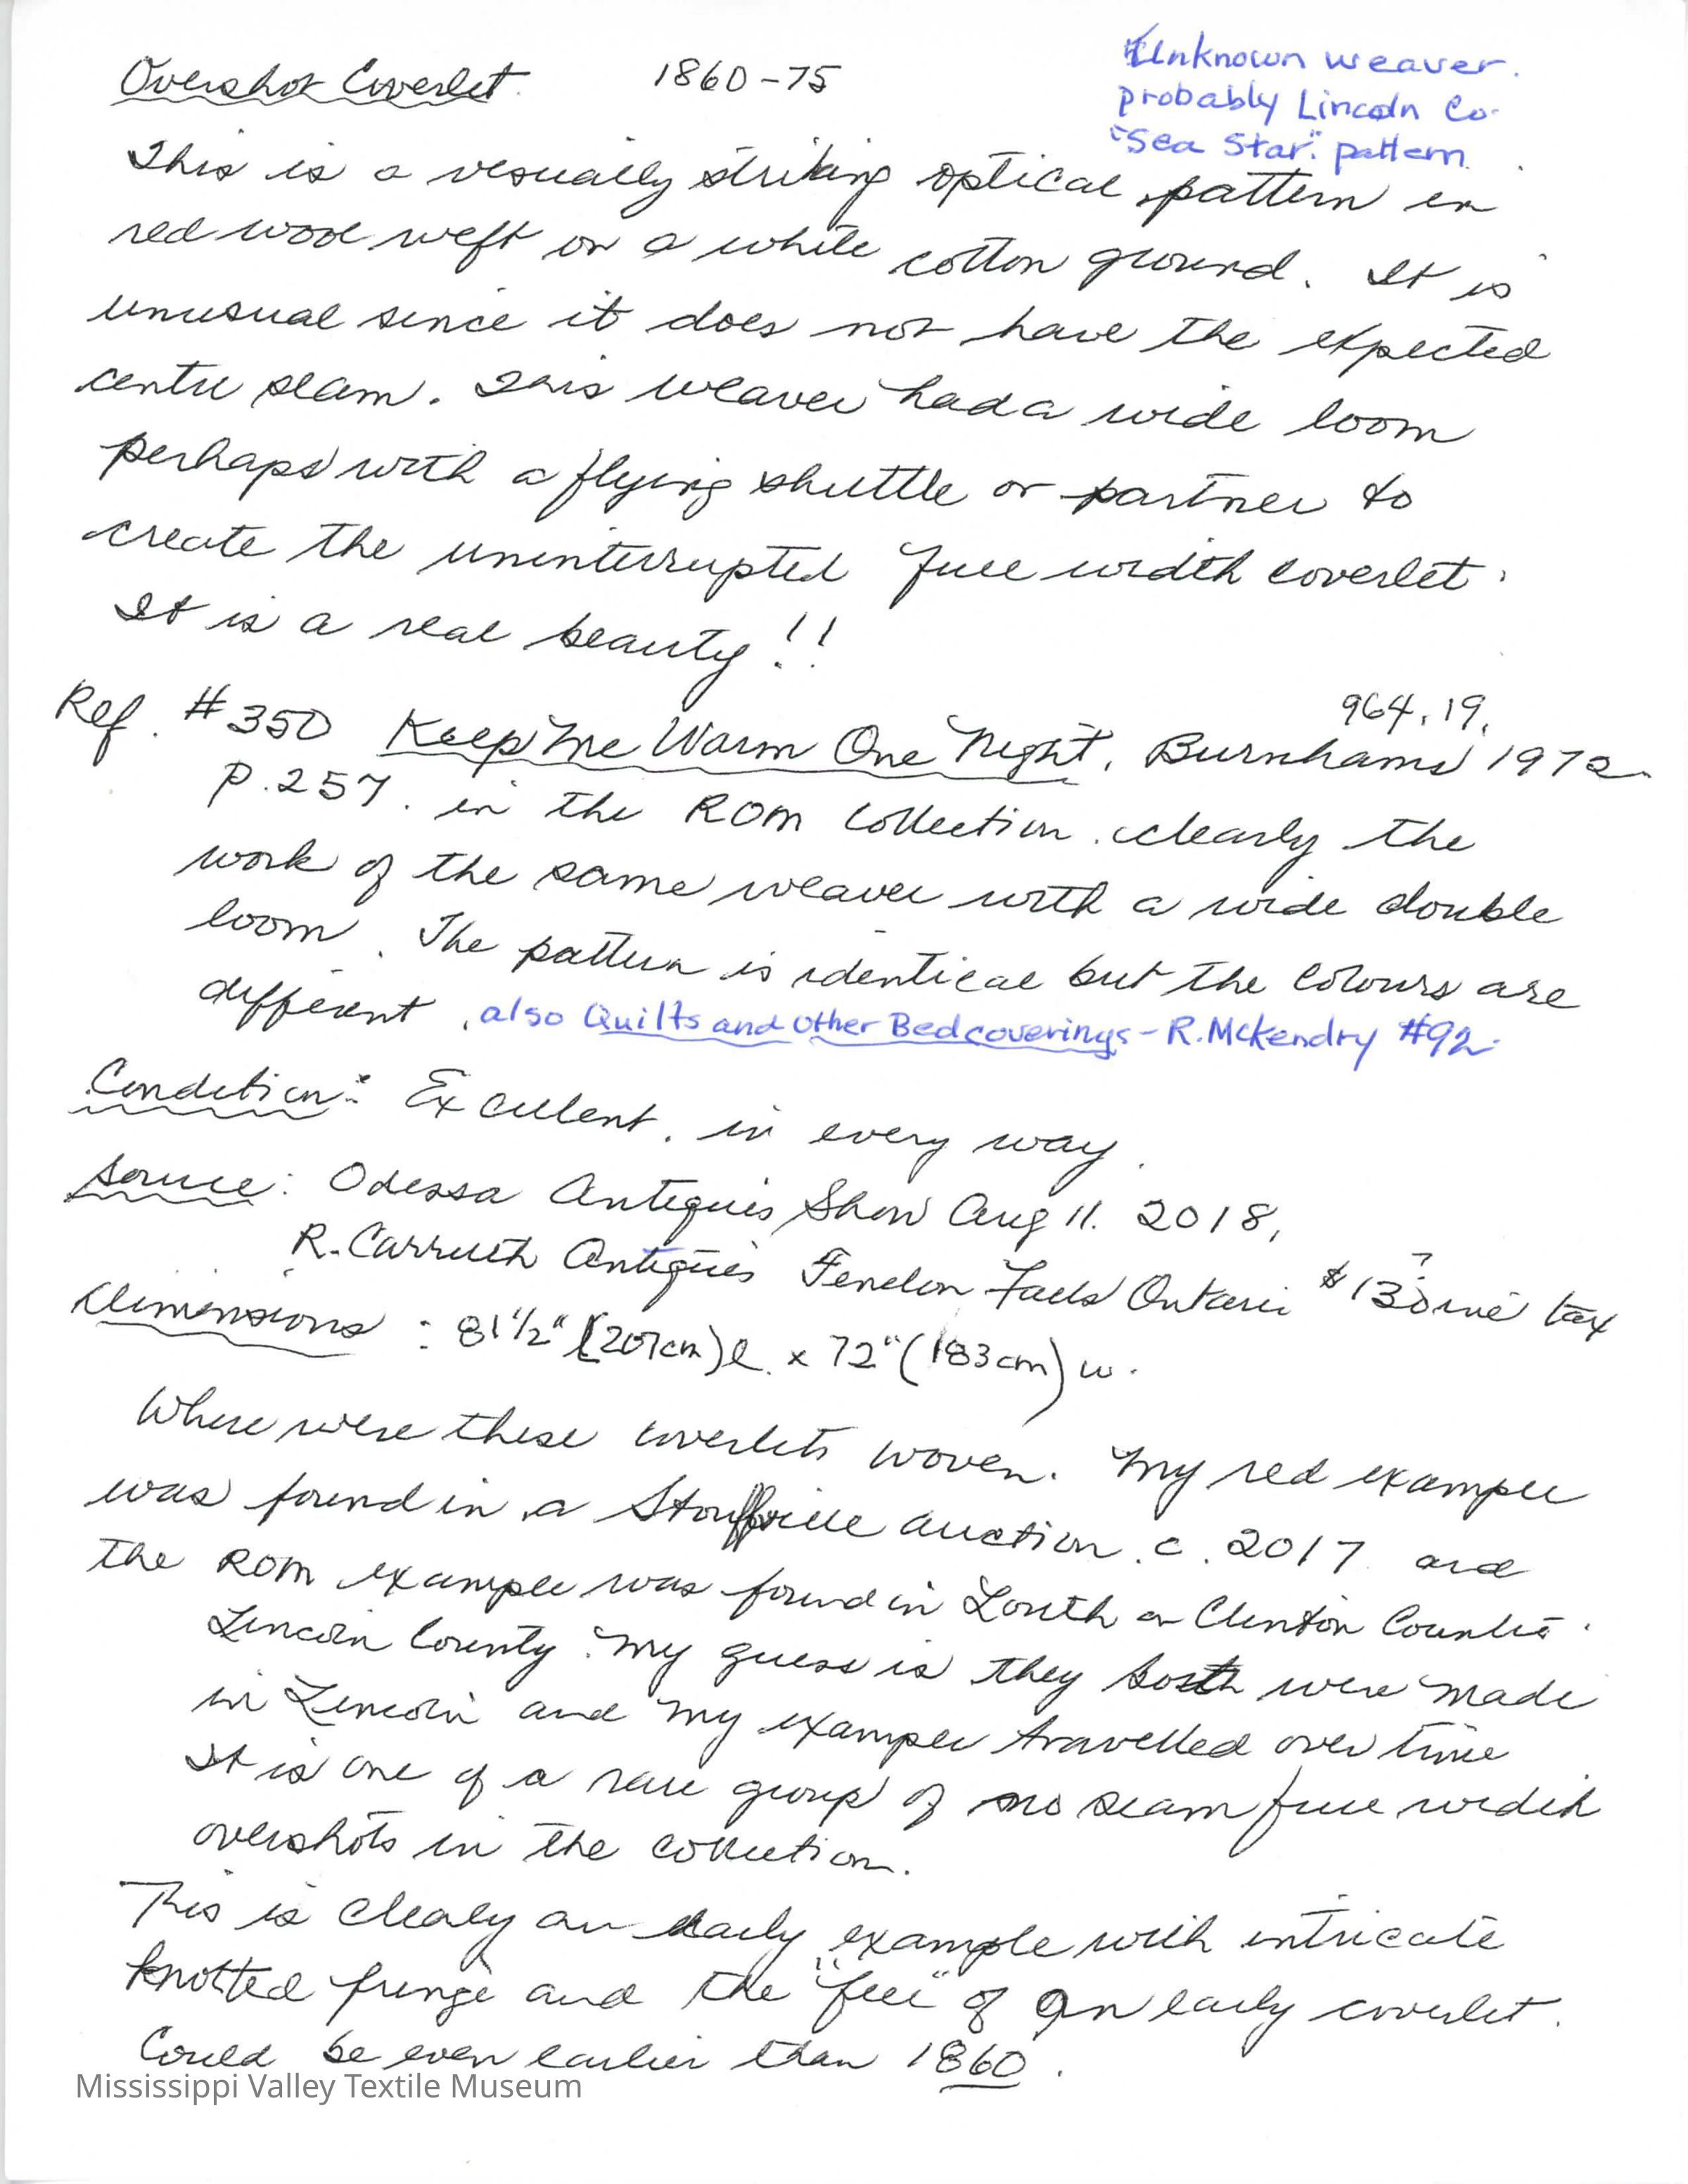 Overshot Coverlet. 1860-75
Unknown weaver.
probably Lincoln Co.
"Sea Star." pattern
This is a visually striking optical pattern in
red wool weft on a white cotton ground. It is
unusual since it does not have the expected
centre seam. This weaver had a wide loom
perhaps with a flying shuttle or partner to
create the uninterrupted full width coverlet.
It is a real beauty!!
964.19.
Ref. #350 Keep Me Warm One Night, Burnhams 1972
p.257. in the ROM Collection. clearly the
work of the same weaver with a wide double
loom. The pattern is identical but the colours are
different, also Quilts and other Bedcoverings - R. McKendry #92.
Condition: Excellent, in every way.
Source: Odessa Antiques Show Aug 11. 2018,
R. Carruth Antiques Fenelon Falls Ontario $130 inc tax
Dimensions: 81 1/2" (207cm) l. x 72" (183cm) w.
Where were these coverlets woven. My red example
was found in a Stouffville auction. c. 2017 and
the ROM example was found in Louth or Clinton Counties.
Lincoln County. My guess is they both were made
in Lincoln and my example travelled over time
It is one of a rare group of no seam full width
overshots in the collection.
This is clealy an early example with intricate
knotted fringe and the "feel" of an early coverlet.
Could be even earlier than 1860.
Mississippi Valley Textile Museum